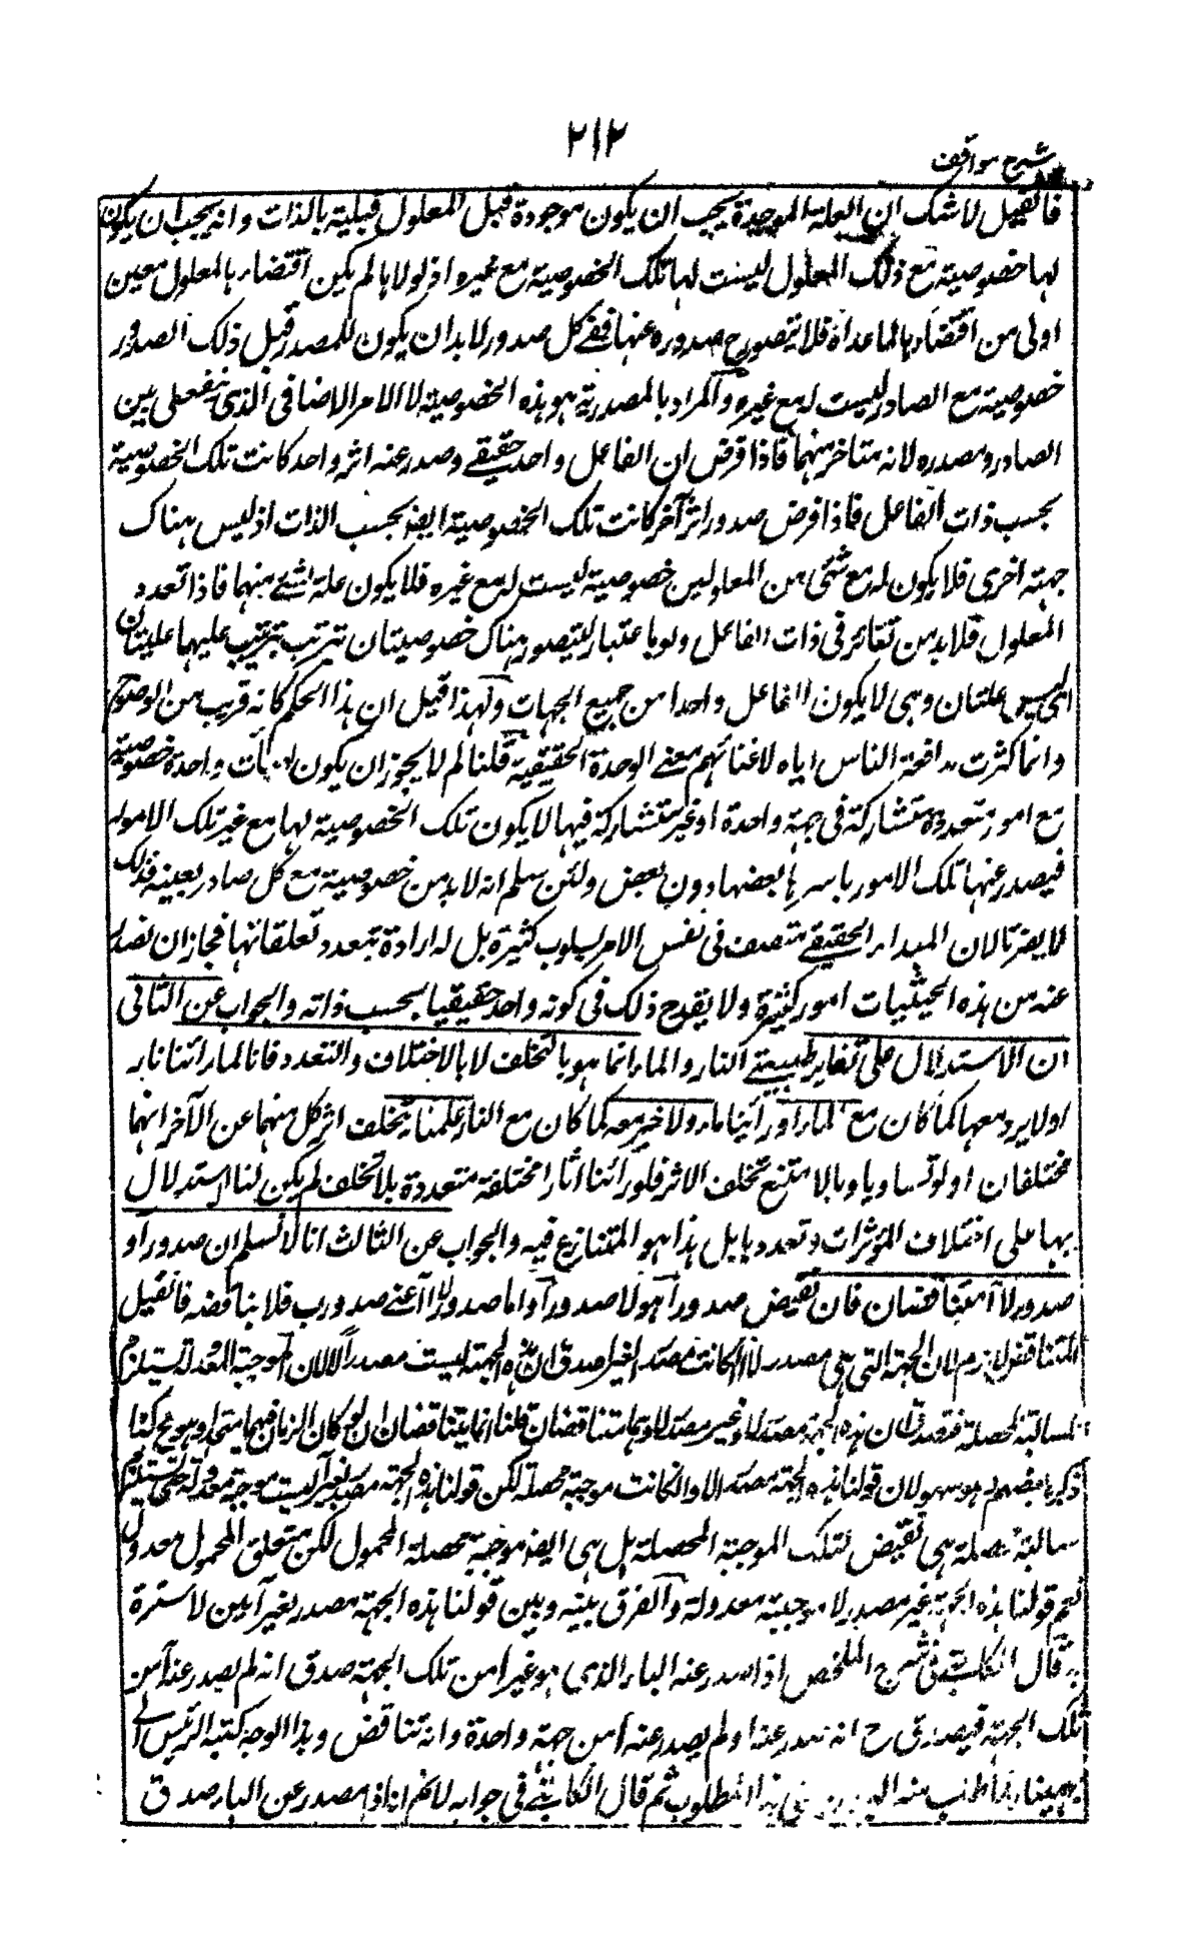 ٢١٢
شرح مواقف
فان قيل لا شك ان العلة الموجدة يجب ان يكون موجودة قبل المعلول قبلية بالذات وانه يجب ان يكون
لها خصوصية مع ذلك المعلول ليست لها تلك الخصوصية مع غيره اذ لولاها لم يكن اقتضاءها لمعلول معين
اولى من اقتضاءها لما عداه فلا يتصور ح صدوره عنها ففى كل صدور لا بد ان يكون للمصدر قبل ذلك الصدور
خصوصية مع الصادر ليست له مع غيره والمراد بالمصدرية هو هذه الخصوصية لا الامر الاضافى الذى يتعقل بين
الصادر ومصدره لانه متاخر منهما فاذا فرض ان الفاعل واحد حقيقے وصدر عنه اثر واحد كانت تلك الخصوصية
بحسب ذات الفاعل فاذا فرض صدور اثر آخر كانت تلك الخصوصية ايضا بحسب الذات اذ ليس هناك
جهة اخرى فلا يكون له مع شئ من المعلولين خصوصية ليست له مع غيره فلا يكون علة لشئے منهما فاذا تعدد
المعلول فلا بد من تغائر فى ذات الفاعل ولو باعتبار ليتصور هناك خصوصيتان تترتب عليهما عليتان
علتان وهى لا يكون الفاعل واحدا من جميع الجهات ولهذا قيل ان هذا الحكم كانه قريب من الوضوح
وانما كثرت مدافعة الناس اياه لاغفالهم معنے الوحدة الحقيقية قلنا لم لا يجوز ان يكون لذات واحدة خصوصية
مع امور متعددة متشاركة فى جهة واحدة او غير متشاركة فيها لا يكون تلك الخصوصية لها مع غير تلك الامور
فيصدر عنها تلك الامور باسرها لا بعضها دون بعض ولئن سلم انه لا بد من خصوصية مع كل صادر بعينه فذلك
لا يضرنا لان المبدأ الحقيقے متصف فى نفس الامر بسلوب كثيرة بل له ارادة تتعدد تعلقاتها فجاز ان تصدر
عنه من هذه الحيثيات امور كثيرة ولا يقدح ذلك فى كونه واحدا حقيقيا بحسب ذاته والجواب عن الثانى
ان الاستدلال على تغاير طبيعتے النار والماء انما هو بالتخلف لا بالاختلاف والتعدد فانا لما رأينا نارا
ولا برد معها كما كان مع الماء ورأينا ماء ولا حر معه كما كان مع النار علمنا تخلف اثر كل منهما عن الآخر انهما
مختلفان اذ لو تساويا وبالا متنع تخلف الاثر فلو رأينا آثارا مختلفة متعددة بلا تخلف لم يكن لنا استدلال
بها على اختلاف المؤثرات وتعددها بل هذا هو المتنازع فيه والجواب عن الثالث انا لا نسلم ان صدور آ و
صدور لا آ متناقضان فان نقيض صدور آ هو لا صدور آ واما صدور لا آ اعنے صدور ب فلا يناقضه فان قيل
التناقض لازم لان الجهة التى هى مصدر لا آ لما كانت مصدرا لغير آ صدق ان هذه الجهة ليست مصدرا لآ لان الموجبة المعدولة تستلزم
السالبة المحصلة فتصدق ان هذه الجهة مصدر لآ وغير مصدر لآ وهما متناقضان قلنا انما يتناقضان ان لو كان الزمان فيهما متحدا وهو ح كذا
ذكره بعضهم وهو سهو لان قولنا هذه الجهة مصدر لآ وان كانت موجبة محصلة لكن قولنا هذه الجهة مصدر لغير آ ليست موجبة معدولة حتى تستلزم
سالبة محصلة هى نقيض لتلك الموجبة المحصلة بل هى ايضا موجبة محصلة المحمول لكن متعلق المحمول معدول
نعم قولنا هذه الجهة غير مصدر لآ موجبة معدولة والفرق بينه وبين قولنا هذه الجهة مصدر لغير آ بين لا سترة
به قال الكاتبے فى شرح الملخص اذا صدر عنه الباء الذى هو غير آ من تلك الجهة صدق انه لم يصدر عنه آ من
تلك الجهة فيصدق ح انه صدر عنه آ ولم يصدر عنه آ من جهة واحدة وانه تناقض وهذا الوجه كتبه الرئيس الے
بهمنيار لما طلب منه البرهان على هذا المطلوب ثم قال الكاتبے فى جوابه لا نم انه اذا صدر عن الباء صدق